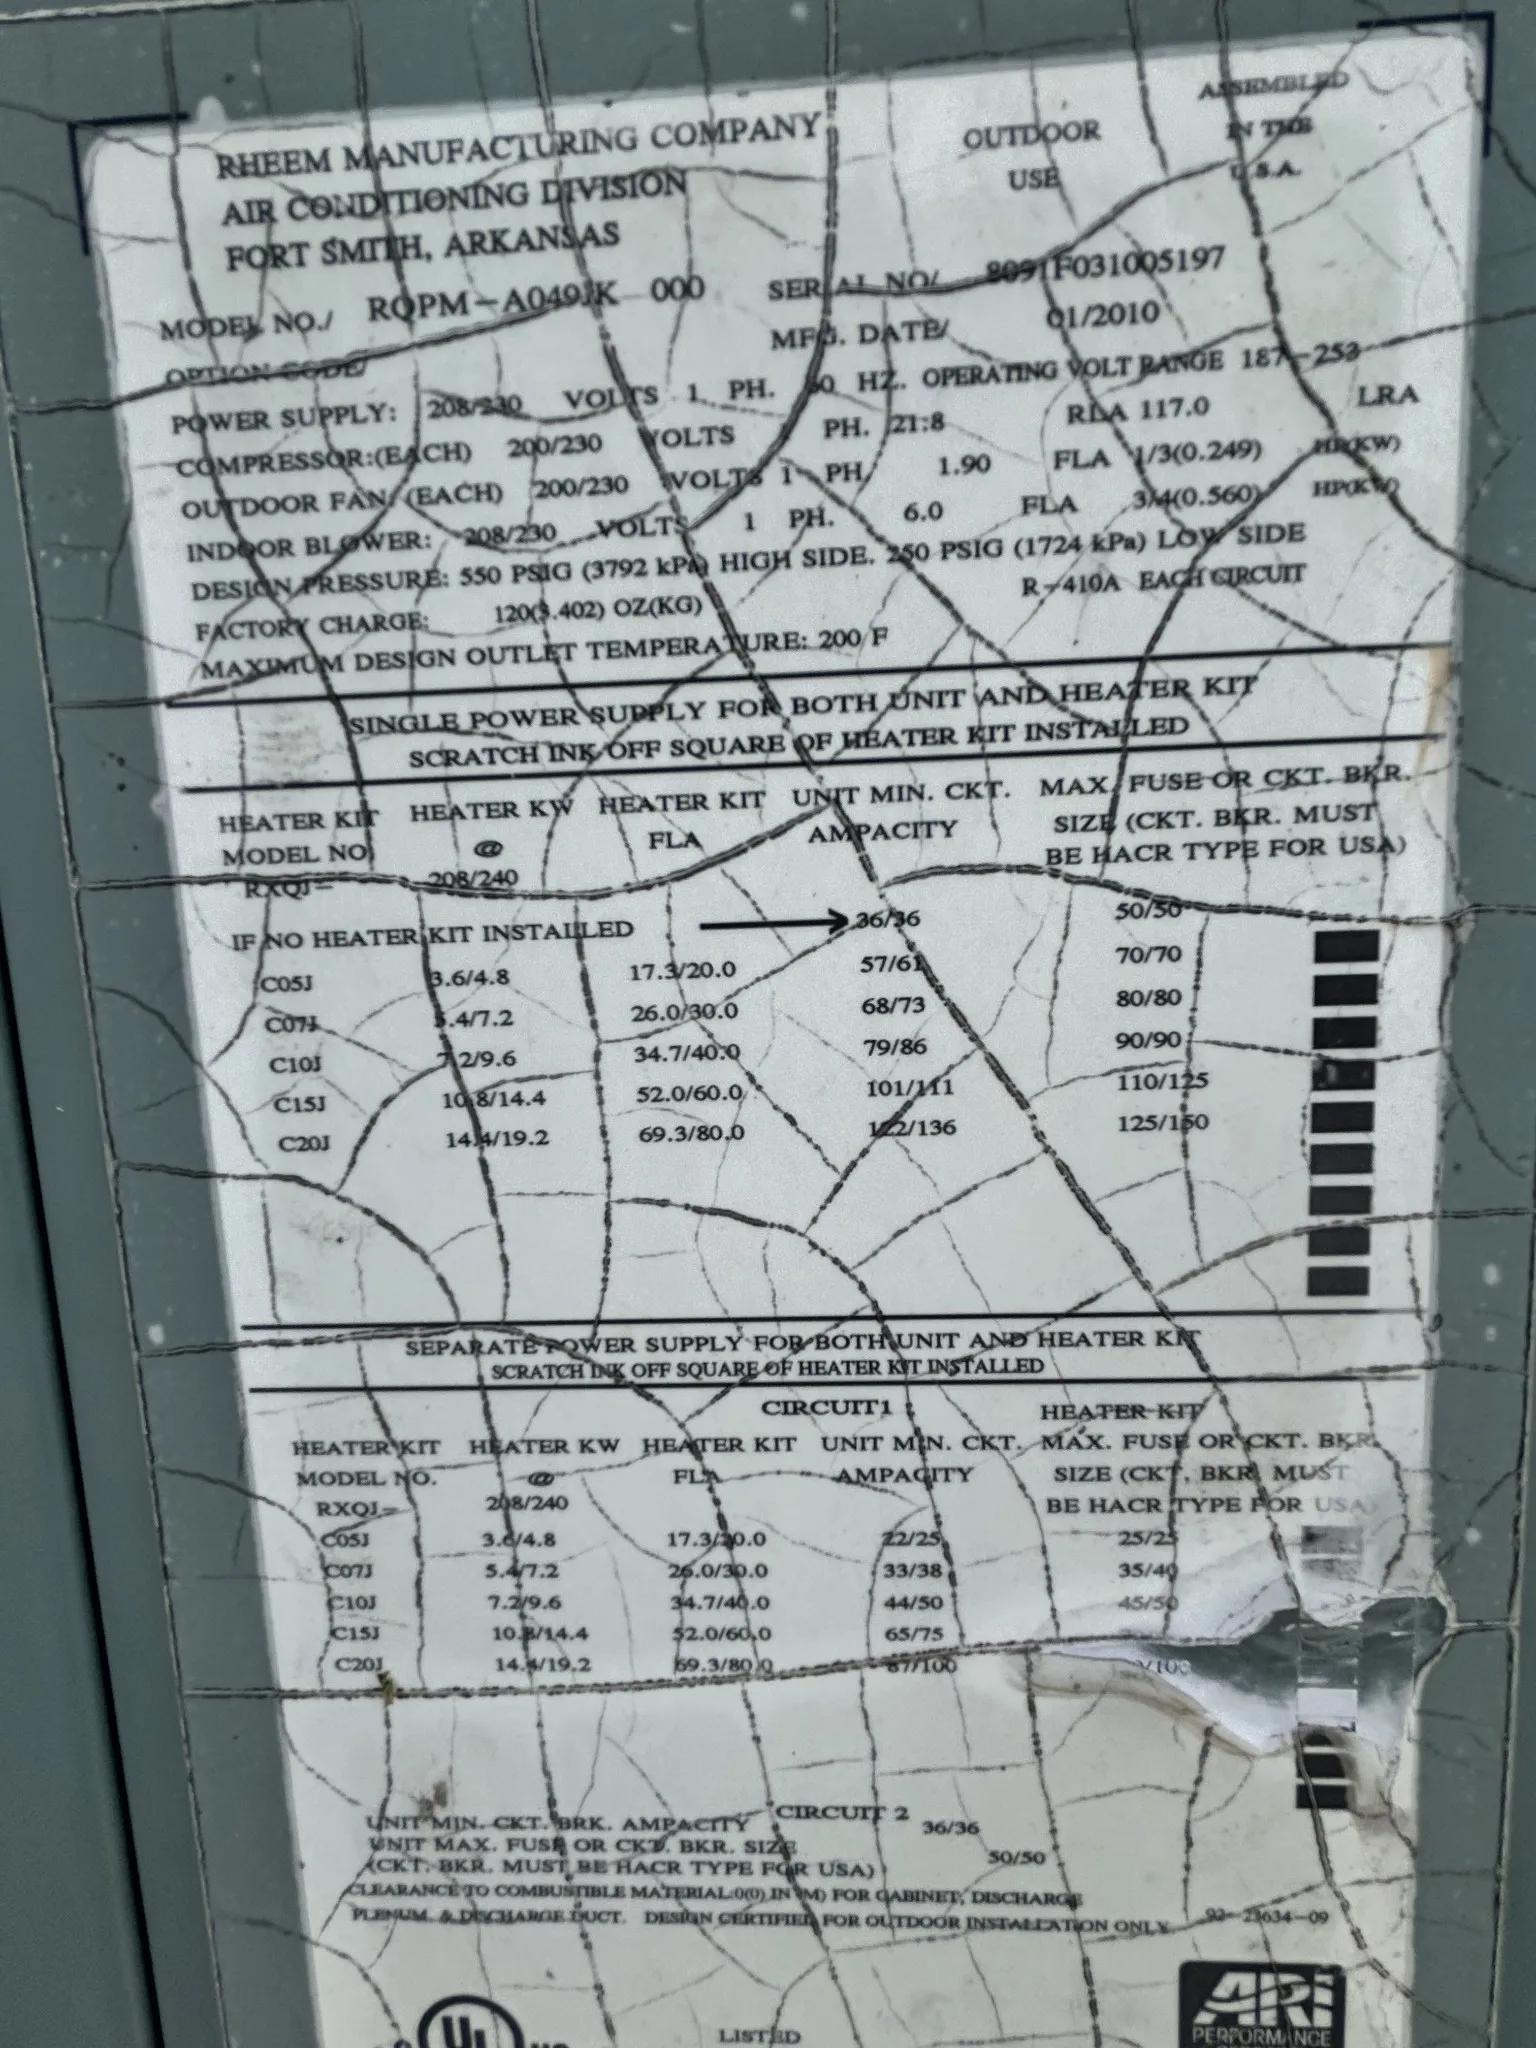 ASSEMBLED
IN THE
U.S.A.
OUTDOOR
USE
RHEEM MANUFACTURING COMPANY
AIR CONDITIONING DIVISION
FORT SMITH, ARKANSAS
MODEL NO./ RQPM-A049JK 000 SERIAL NO/ 8091F031005197
OPTION CODE/ MFG. DATE/ 01/2010
POWER SUPPLY: 208/230 VOLTS 1 PH. 60 HZ. OPERATING VOLT RANGE 187-253
COMPRESSOR:(EACH) 200/230 VOLTS PH. 21.8 RLA 117.0 LRA
OUTDOOR FAN: (EACH) 200/230 VOLTS 1 PH 1.90 FLA 1/3(0.249) HP(KW)
INDOOR BLOWER: 208/230 VOLTS 1 PH. 6.0 FLA 3/4(0.560) HP(KW)
DESIGN PRESSURE: 550 PSIG (3792 kPa) HIGH SIDE. 250 PSIG (1724 kPa) LOW SIDE
FACTORY CHARGE: 120(3.402) OZ(KG) R-410A EACH CIRCUIT
MAXIMUM DESIGN OUTLET TEMPERATURE: 200 F
SINGLE POWER SUPPLY FOR BOTH UNIT AND HEATER KIT
SCRATCH INK OFF SQUARE OF HEATER KIT INSTALLED
HEATER KIT HEATER KW HEATER KIT UNIT MIN. CKT. MAX. FUSE OR CKT. BKR.
MODEL NO. @ FLA AMPACITY SIZE (CKT. BKR. MUST
RXQJ- 208/240 BE HACR TYPE FOR USA)
IF NO HEATER KIT INSTALLED 36/36 50/50
C05J 3.6/4.8 17.3/20.0 57/61 70/70
C07J 5.4/7.2 26.0/30.0 68/73 80/80
C10J 7.2/9.6 34.7/40.0 79/86 90/90
C15J 10.8/14.4 52.0/60.0 101/111 110/125
C20J 14.4/19.2 69.3/80.0 122/136 125/150
SEPARATE POWER SUPPLY FOR BOTH UNIT AND HEATER KIT
SCRATCH INK OFF SQUARE OF HEATER KIT INSTALLED
CIRCUIT1 HEATER KIT
HEATER KIT HEATER KW HEATER KIT UNIT MIN. CKT. MAX. FUSE OR CKT. BKR.
MODEL NO. @ FLA AMPACITY SIZE (CKT. BKR. MUST
RXQJ- 208/240 BE HACR TYPE FOR USA)
C05J 3.6/4.8 17.3/20.0 22/25 25/25
C07J 5.4/7.2 26.0/30.0 33/38 35/40
C10J 7.2/9.6 34.7/40.0 44/50 45/50
C15J 10.8/14.4 52.0/60.0 65/75
C20J 14.4/19.2 69.3/80.0 87/100
CIRCUIT 2
UNIT MIN. CKT. BRK. AMPACITY 36/36
UNIT MAX. FUSE OR CKT. BKR. SIZE 50/50
(CKT. BKR. MUST BE HACR TYPE FOR USA)
CLEARANCE TO COMBUSTIBLE MATERIAL:0(0) IN (M) FOR CABINET, DISCHARGE
PLENUM. & DISCHARGE DUCT. DESIGN CERTIFIED FOR OUTDOOR INSTALLATION ONLY
92-23634-09
UL
LISTED
ARI
PERFORMANCE